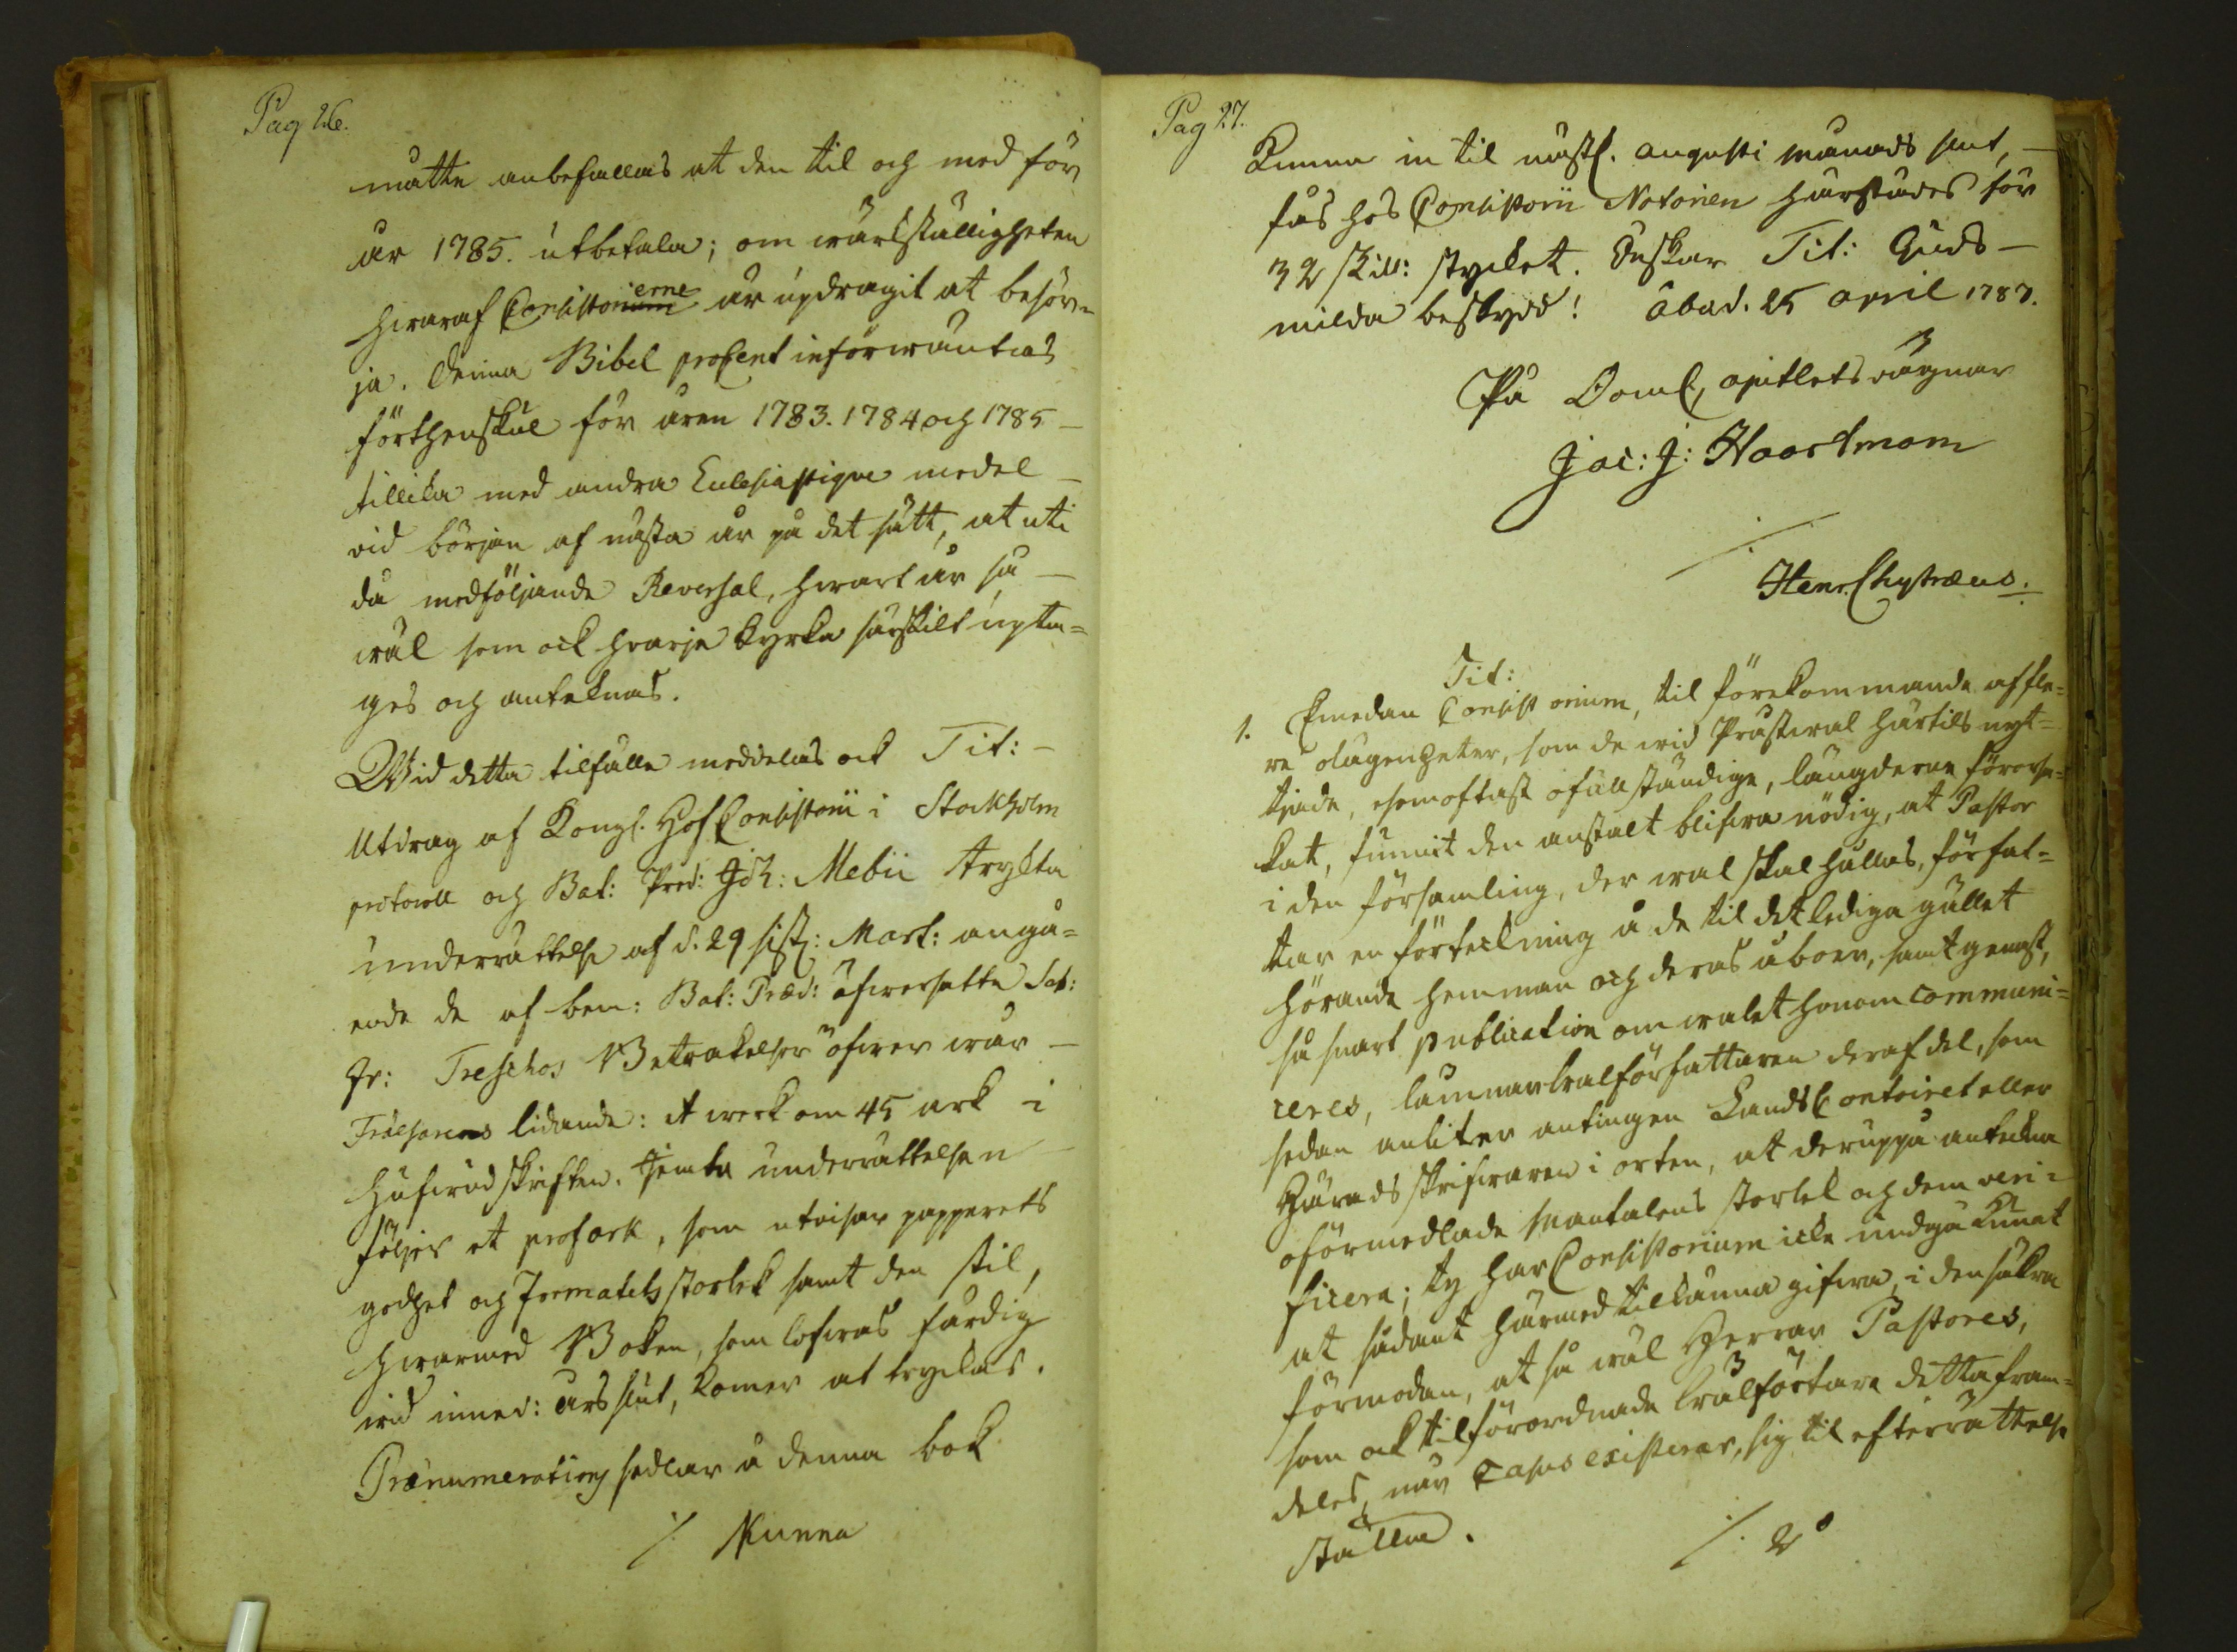 Pag 26.
måtte anbefallas at den til och med för
år 1785. utbetala; om wärkställigheten
hwaraf Consistorierne är updragit at besör-
ja. Denna Bibel procent införwäntas
förthenskul för åren 1783. 1784 och 1785 -
tillika med andra Eclesiastique medel -
vid början af nästa år på det sätt, at uti
då medföljande Reversal, hwart år så -
wäl som ock hvarje kyrka särskilt upta=
ges och anteknas.
Wid detta tilfälle meddelas ock Tit: -
Utdrag af Kongl. HofConsistorii i Stockholm
protocoll och Bat: Pred: Joh: Mebii tryckta
underrättelse af d. 29 sistl: Mart: angå=
ende de af bem: Bat: Præd: öfwersatta Seb:
Fr: Treschos Betrakelser öfwer wår -
Frälsares lidande: et werk om 45 ark i
hufwudskriften. Jemte underrättelsen
följer et profark, som utvisar papperets
godhet och Formatets storlek samt den stil,
hwarmed Boken, som lofwas färdig
wid innev: års slut, komer at tryckas.
Prænumerations sedlar å denna bok
./. Kunna
Pag 27.
Kunna in til nästk. Augusti månads slut, -
fås hos Consistorii Notarien härstädes för
32 skill: stycket. Önskar Tit: Guds -
milda beskydd! Åbo d. 25 April 1787.
På DomCapitlets vägnar
Jac: J: Haartman
./.
Henr. Chytræus.
Tit:
1. Emedan Consistorium, til förekommande af fle=
re olägenheter, som de wid Prästwal härtils nyt=
tjade, esomoftast ofullständige, längderne förorsa=
kat, funnit den anstalt blifwa nödig, at Pastor
i den församling, der wal skal hållas, förfat=
tar en förtekning å de til det lediga gället
hörande hemman och deras åboer, samt genast,
så snart publication om walet honom communi=
ceres, lämnar walförfattaren deraf del, som
sedan anliter antingen LandsContoiret eller
Härads skrifwaren i orten, at deruppå anteckna
oförmedlade Mantalens storlek och dem veri=
ficera; ty har Consistorium icke undgå kunnat
at sådant härmed tilkänna gifwa, i den säkra
förmodan, at så wäl Herrar Pastores,
som ock tilförordnade walförrättare detta fram=
deles, när Casus existerar, sig til efterrättelse
ställa.
./. 2º